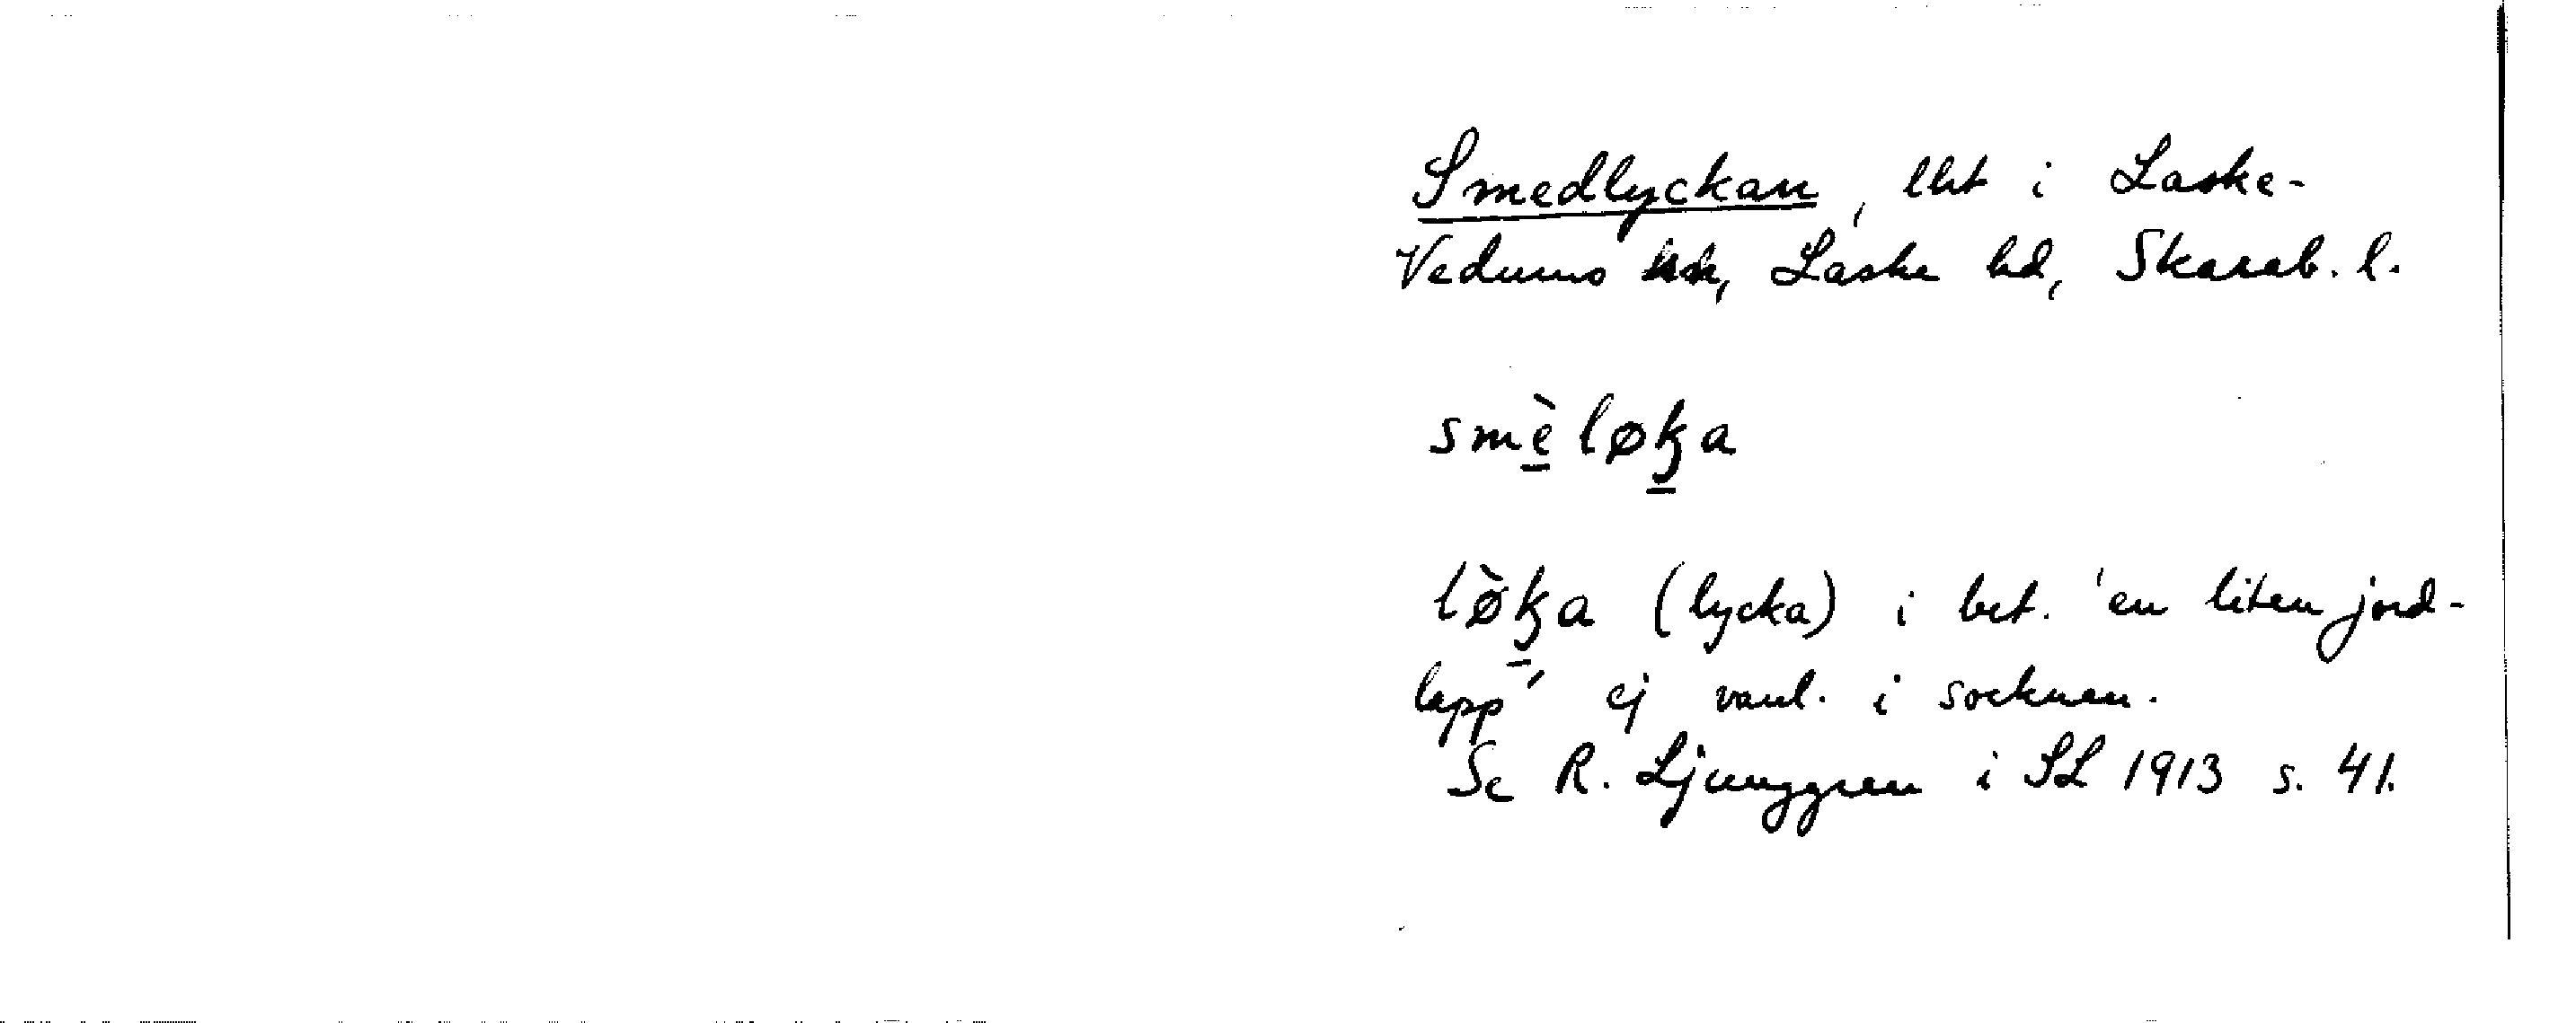 Smedlyckan, lht i Laske-
Vedums sn, Laske hd, Skarab. l.
smè̱løꝁ̱a
lø̀ꝁ̱a (lycka) i bet. 'en liten jord-
lapp' ej vanl. i socknen.
Se R. Ljunggren i SL 1913 s. 41.